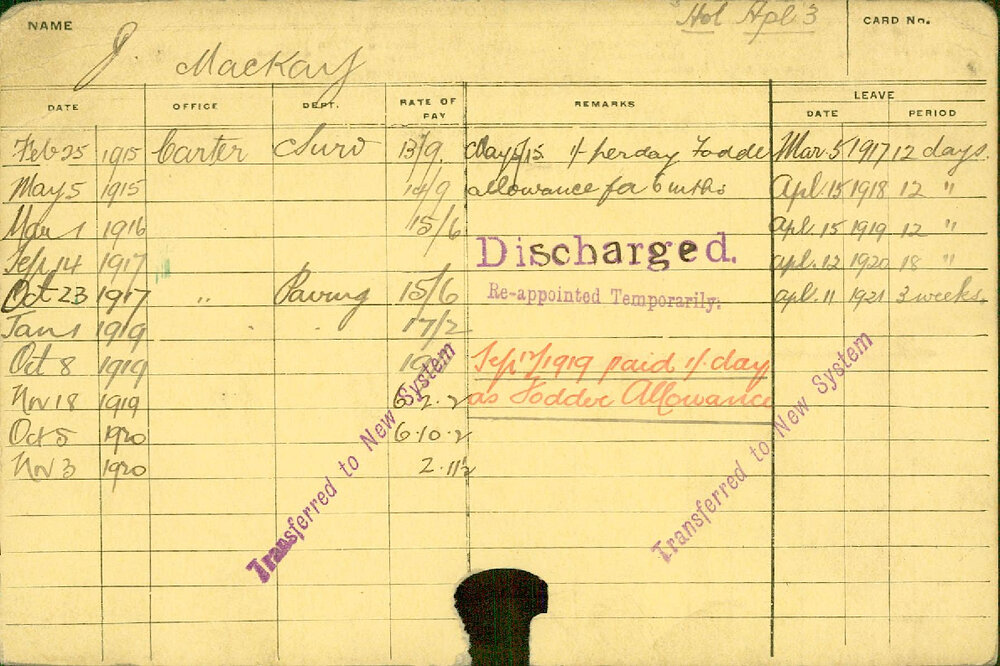 NAME
Hol Apl 3
CARD No.
J. MacKay
DATE OFFICE DEPT. RATE OF PAY REMARKS LEAVE
DATE PERIOD
Feb 25 1915 Carter Surv 13/9 May 5/15 1/- per day Fodder Mar. 5 1917 12 days.
May 5 1915 14/9 allowance for 6 mths Apl. 15 1918 12 "
Mar 1 1916 15/6 Apl. 15 1919 12 "
Sep 14 1917 Discharged. Apl. 12 1920 18 "
Oct 23 1917 " Paving 15/6 Re-appointed Temporarily. Apl. 11 1921 3 weeks.
Jan 1 1919 17/2
Oct 8 1919 Sep 17/1919 paid 1/- day
Nov 18 1919 6.2.2 as Fodder Allowance
Oct 5 1920 6.10.2
Nov 3 1920 2.11½
Transferred to New System
Transferred to New System